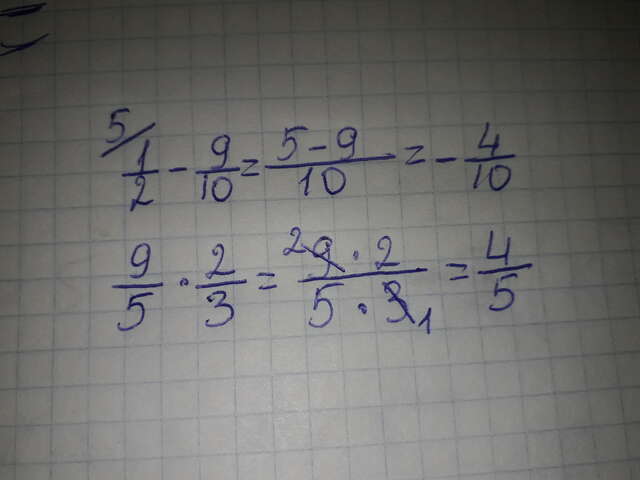 5/ 1/2 - 9/10 = (5-9)/10 = - 4/10
9/5 · 2/3 = (2 9 · 2)/(5 · 3 1) = 4/5